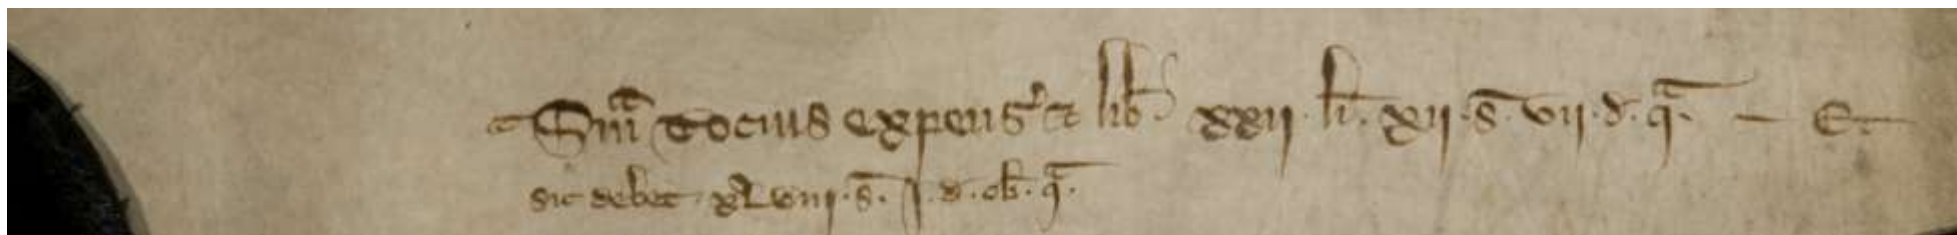 Sma tocius expens et lib xxii li. xii. s vii. d. qa. — E.
sic debet xLviii. s. i. d. ob. qa.